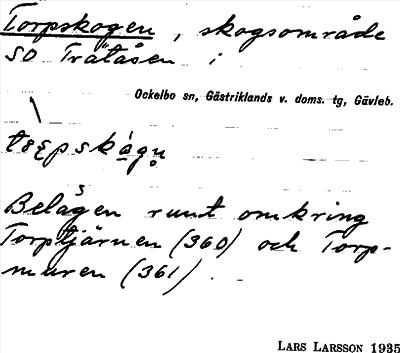 Torpskogen, skogsområde
SO Tråtåsen i
Ockelbo sn, Gästriklands v. doms. tg, Gävleb.
Belägen runt omkring
Torptjärnen (360) och Torp-
muren (361).
LARS LARSSON 1935